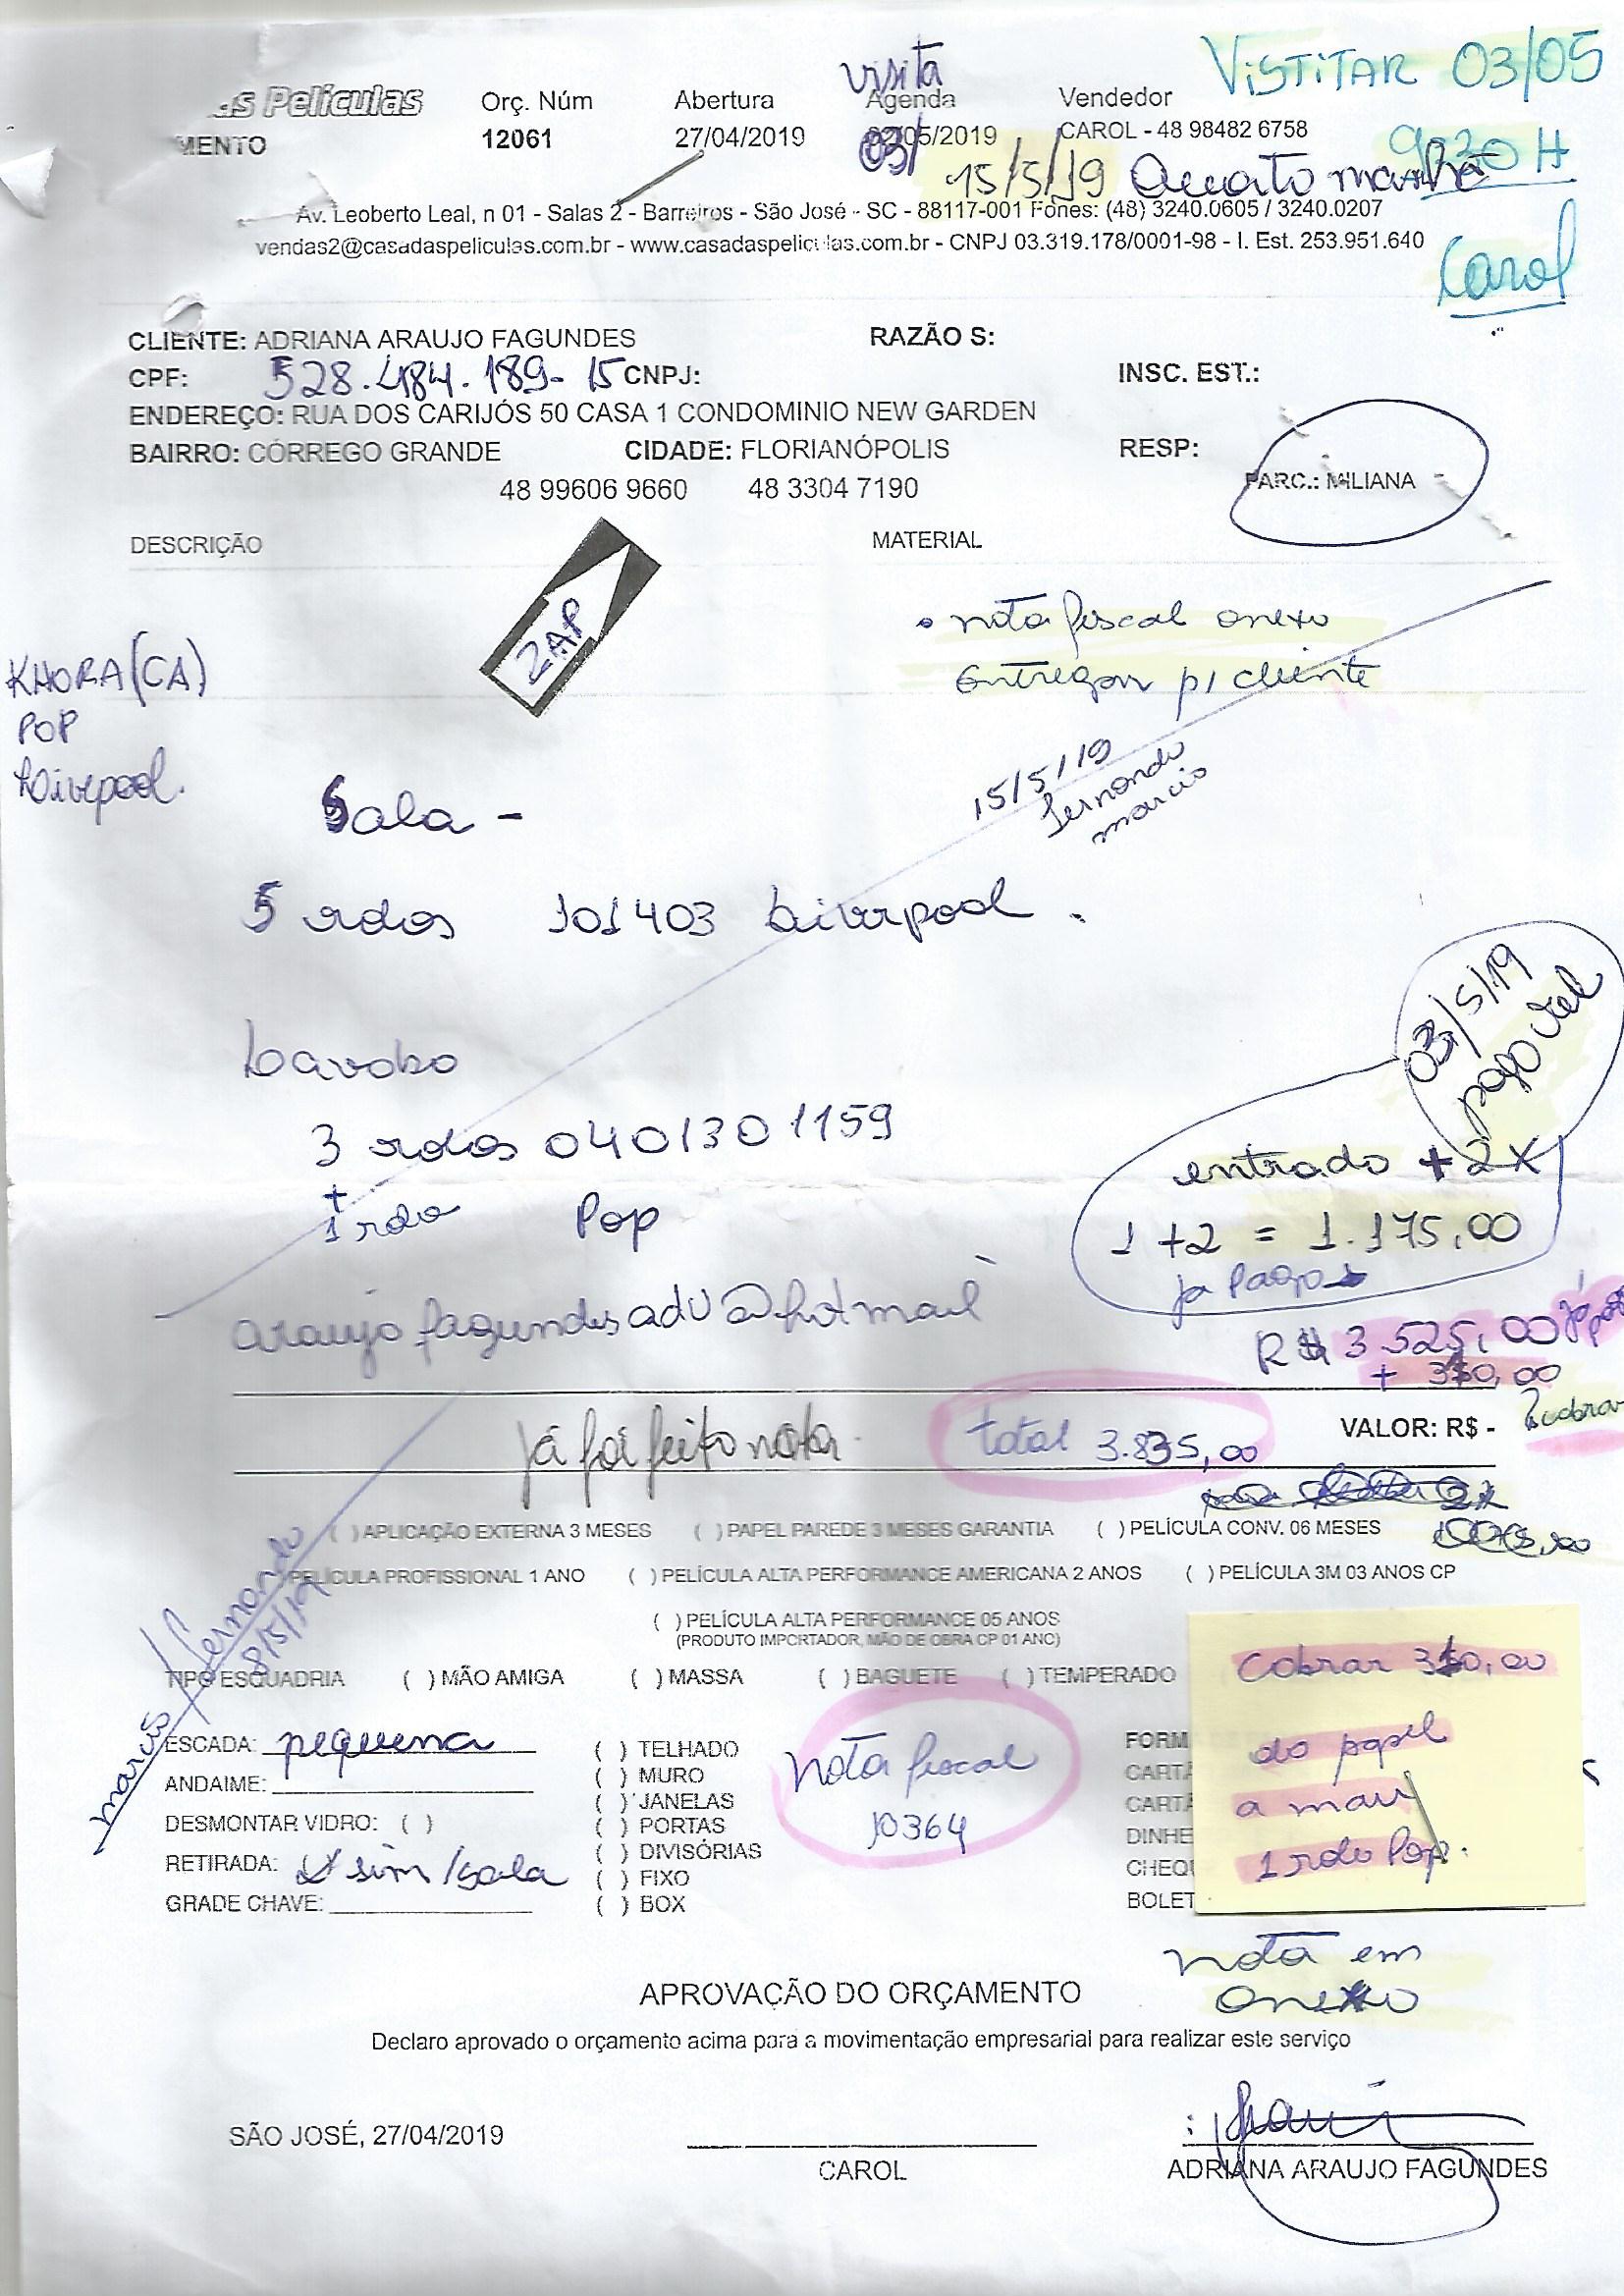 visita
VISTITAR 03/05
as Películas
Orç. Núm
Abertura
Agenda
Vendedor
MENTO
12061
27/04/2019
03/ /05/2019
CAROL - 48 98482 6758
9:30 H
15/5/19 Quarta manhã
Av. Leoberto Leal, n 01 - Salas 2 - Barreiros - São José - SC - 88117-001 Fones: (48) 3240.0605 / 3240.0207
vendas2@casadaspeliculas.com.br - www.casadaspeliculas.com.br - CNPJ 03.319.178/0001-98 - I. Est. 253.951.640
Carol
CLIENTE: ADRIANA ARAUJO FAGUNDES RAZÃO S:
CPF: 528.484.189-15 CNPJ: INSC. EST.:
ENDEREÇO: RUA DOS CARIJÓS 50 CASA 1 CONDOMINIO NEW GARDEN
BAIRRO: CÓRREGO GRANDE CIDADE: FLORIANÓPOLIS RESP:
48 99606 9660 48 3304 7190 PARC.: MILIANA
DESCRIÇÃO MATERIAL
ZAP
• nota fiscal anexo
entregar p/ cliente
KHORA(CA)
POP
Liverpool.
15/5/19
Fernando
marcis
Sala -
5 rdos 101403 Liverpool.
03/5/19
Lavabo
3 rolos 0401301159
+
1 rolo Pop
entrada + 2X
1 + 2 = 1.175,00
já pago
araujofagundesadv@hotmail
R$ 3.525,00 já
+ 310,00
Já foi feito nota.
total 3.835,00
VALOR: R$ -
2x
( ) APLICAÇÃO EXTERNA 3 MESES ( ) PAPEL PAREDE 3 MESES GARANTIA ( ) PELÍCULA CONV. 06 MESES
PELÍCULA PROFISSIONAL 1 ANO ( ) PELÍCULA ALTA PERFORMANCE AMERICANA 2 ANOS ( ) PELÍCULA 3M 03 ANOS CP
( ) PELÍCULA ALTA PERFORMANCE 05 ANOS
(PRODUTO IMPORTADOR, MÃO DE OBRA CP 01 ANO)
marcis / Fernando
8/5/19
TIPO ESQUADRIA ( ) MÃO AMIGA ( ) MASSA ( ) BAGUETE ( ) TEMPERADO
Cobrar 310,00
do papel
a mais
1 rdo Pop.
ESCADA: pequena
ANDAIME:
DESMONTAR VIDRO: ( )
RETIRADA: (x) sim/sala
GRADE CHAVE:
( ) TELHADO
( ) MURO
( ) JANELAS
( ) PORTAS
( ) DIVISÓRIAS
( ) FIXO
( ) BOX
Nota fiscal
10364
FORM
CARTÃ
CARTÃ
DINHE
CHEQU
BOLET
nota em
anexo
APROVAÇÃO DO ORÇAMENTO
Declaro aprovado o orçamento acima para a movimentação empresarial para realizar este serviço
SÃO JOSÉ, 27/04/2019
CAROL
ADRIANA ARAUJO FAGUNDES